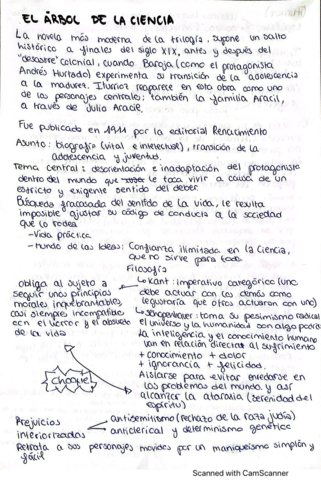 EL ÁRBOL DE LA CIENCIA
La novela más moderna de la trilogía. Supone un salto
histórico a finales del siglo XIX, antes y después del
"desastre" colonial, cuando Baroja (como el protagonista
Andrés Hurtado) experimenta su transición de la adolescencia
a la madurez. Iturrioz reaparece en esta obra como uno
de los personajes centrales; también la familia Aracil,
a través de Julio Aracil.
Fue publicado en 1911 por la editorial Renacimiento
Asunto: biografía (vital e intelectual), transición de la
adolescencia y juventud.
Tema central: desorientación e inadaptación del protagonista
dentro del mundo que le toca vivir a causa de un
estricto y exigente sentido del deber.
Búsqueda fracasada del sentido de la vida, le resulta
imposible ajustar su código de conducta a la sociedad
que lo rodea
- Vida práctica
- mundo de las ideas: Confianza ilimitada en la Ciencia,
que no sirve para todo.
Filosofía
obliga al sujeto a
seguir unos principios
morales inquebrantables,
casi siempre incompatibles
con el error y el absurdo
de la vida
Kant: imperativo categórico (uno
debe actuar con las demás como
le gustaría que otros actuaran con uno)
Schopenhauer: toma su pesimismo radical
el universo y la humanidad son algo
la inteligencia y el conocimiento humano
van en relación directa al sufrimiento
+ conocimiento + dolor
+ ignorancia + felicidad.
Aislarse para evitar enredarse en
los problemas del mundo, y así
alcanzar la ataraxia (serenidad del
espíritu)
¡Choque!
Prejuicios
interiorizados
Antisemitismo (rechazo de la raza judía)
anticlerical y determinismo genético
Retrata a sus personajes movidos por un maniqueísmo simplón y
fácil
Scanned with CamScanner